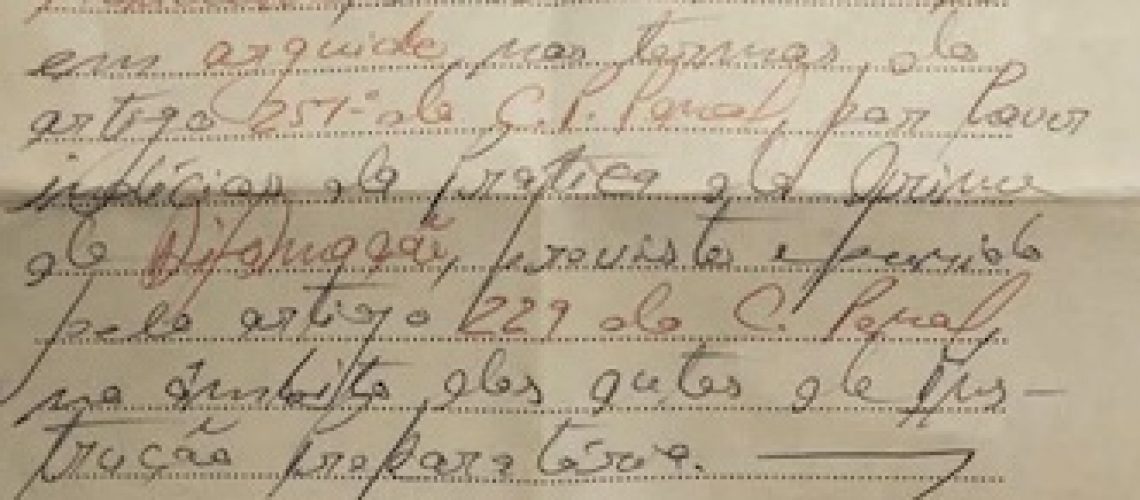 em arguido nos termos do
artigo 251º do C.P. Penal, por haver
indícios da prática do Crime
de Difamação, previsto e punido
pelo artigo 229 do C. Penal,
no âmbito dos autos de Ins-
trução Preparatória.